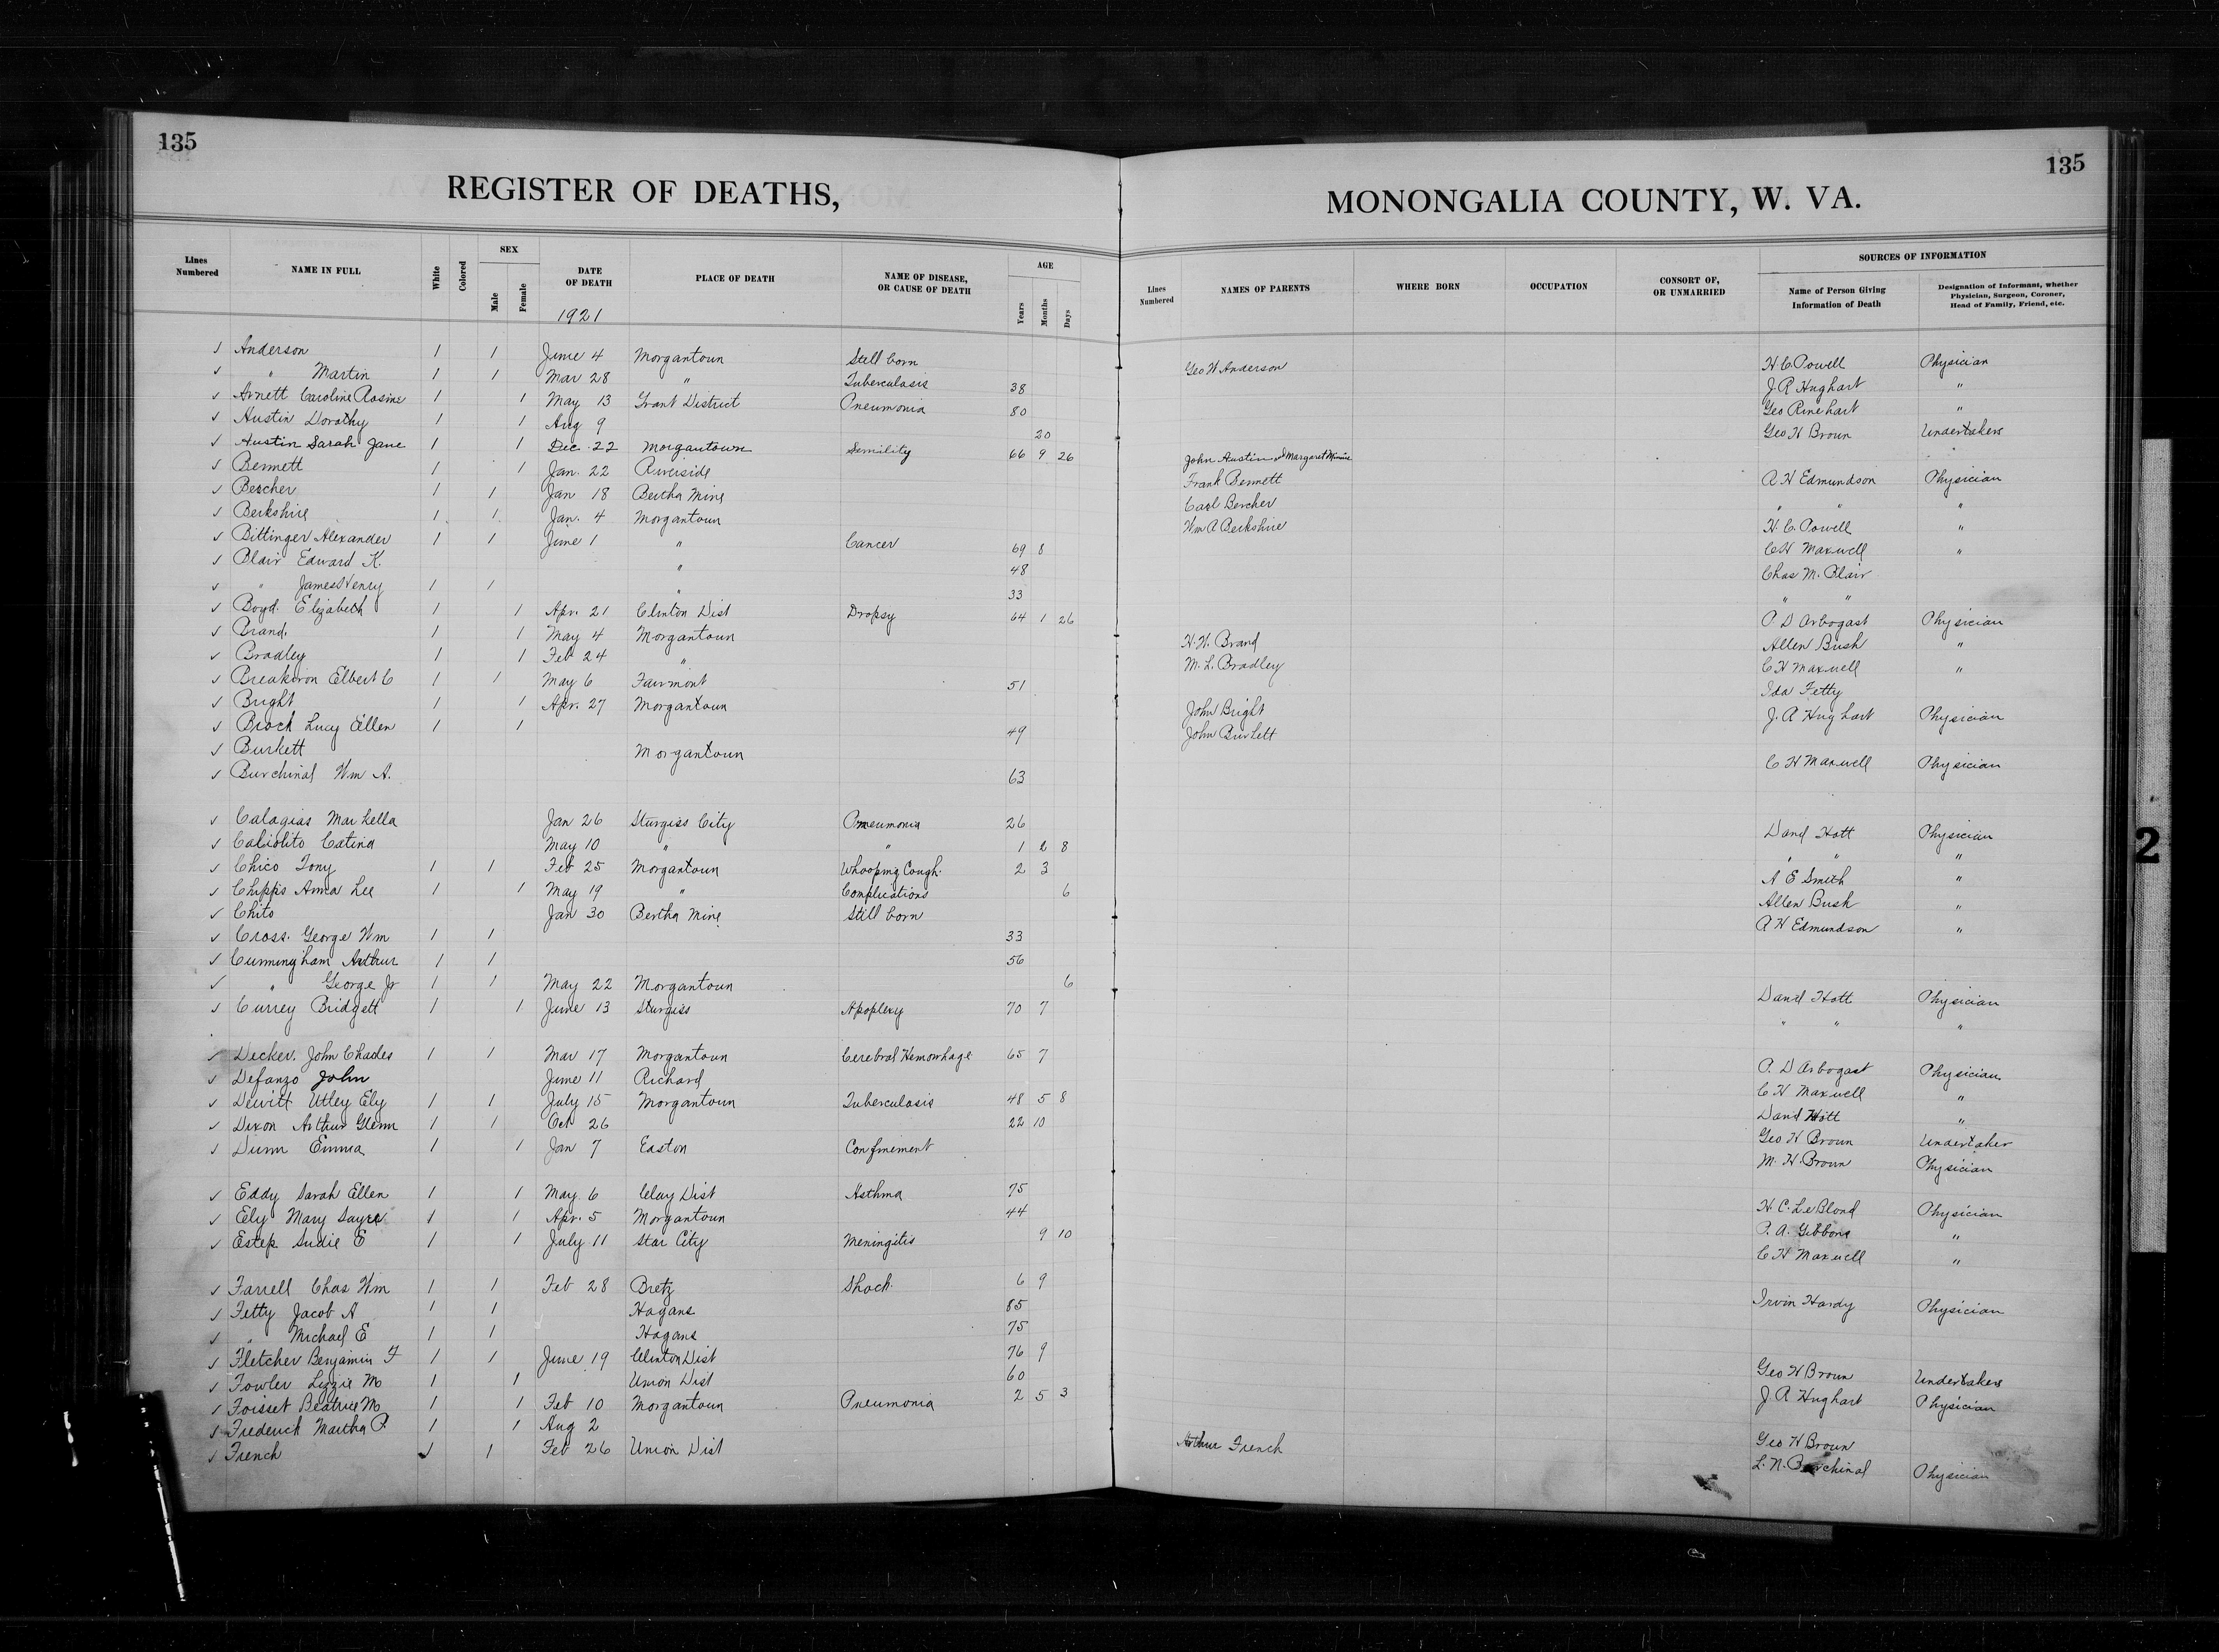 135
135
REGISTER OF DEATHS, MONONGALIA COUNTY, W. VA.
Lines Numbered NAME IN FULL White Colored SEX Male Female DATE OF DEATH PLACE OF DEATH NAME OF DISEASE, OR CAUSE OF DEATH AGE Years Months Days Lines Numbered NAMES OF PARENTS WHERE BORN OCCUPATION CONSORT OF, OR UNMARRIED SOURCES OF INFORMATION Name of Person Giving Information of Death Designation of Informant, whether Physician, Surgeon, Coroner, Head of Family, Friend, etc.
1921
✓ Anderson 1 1 June 4 Morgantown Still born Geo W Anderson H C Powell Physician
✓ " Martin 1 1 Mar 28 " Tuberculosis 38 J. R Hughart "
✓ Arnett Caroline Rosine 1 1 May 13 Grant District Pneumonia 80 Geo Rinehart "
✓ Austin Dorothy 1 1 Aug 9 20 Geo H Brown Undertakers
✓ Austin Sarah Jane 1 1 Dec. 22 Morgantown Senility 66 9 26 John Austin and Margaret
✓ Bennett 1 1 Jan. 22 Riverside Frank Bennett A H Edmundson Physician
✓ Bercher 1 1 Jan 18 Bertha Mine Carl Bercher " " "
✓ Berkshire 1 1 Jan. 4 Morgantown Wm A Berkshire H. C. Powell "
✓ Bittinger Alexander 1 1 June 1 " Cancer 69 8 C H Maxwell "
✓ Blair Edward K. " 48 Chas M. Blair
✓ " James Henry 1 1 " 33 " "
✓ Boyd. Elizabeth 1 1 Apr. 21 Clinton Dist Dropsy 64 1 26 P D Arbogast Physician
✓ Brand. 1 1 May 4 Morgantown H. H. Brand Allen Bush "
✓ Bradley 1 1 Feb 24 " M. L. Bradley C H Maxwell "
✓ Breakiron Elbert C 1 1 May 6 Fairmont 51 Ida Fetty
✓ Bright 1 1 Apr. 27 Morgantown John Bright J. A Hughart Physician
✓ Brock Lucy Ellen 1 1 49 John Burkett
✓ Burkett Morgantown C H Maxwell Physician
✓ Burchinal Wm A. 63
✓ Calagias Markella Jan 26 Sturgiss City Pneumonia 26 David Hott Physician
✓ Caliolito Catina May 10 " " 1 2 8 " " "
✓ Chico Tony 1 1 Feb 25 Morgantown Whooping Cough. 2 3 A E Smith "
✓ Chipps Anna Lee 1 1 May 19 " Complications 6 Allen Bush "
✓ Chito Jan 30 Bertha Mine Still born A H Edmundson "
✓ Cross. George Wm 1 1 33
✓ Cunningham Arthur 1 1 56
✓ " George Jr 1 1 May 22 Morgantown 6 David Hott Physician
✓ Currey Bridgett 1 1 June 13 Sturgiss Apoplexy 70 7 " " "
✓ Decker. John Chades 1 1 Mar 17 Morgantown Cerebral Hemorrhage 65 7 P. D Arbogast Physician
✓ Defanzo John June 11 Richard C H Maxwell "
✓ Dewitt Utley Ely 1 1 July 15 Morgantown Tuberculosis 48 5 8 David Hott "
✓ Dixon Arthur Glenn 1 1 Oct 26 22 10 Geo H Brown Undertaker
✓ Dunn Emma 1 1 Jan 7 Easton Confinement M. H. Brown Physician
✓ Eddy Sarah Ellen 1 1 May 6 Clay Dist Asthma 75 H. C. LeBlond Physician
✓ Ely Mary Sayre 1 1 Apr. 5 Morgantown 44 P. A. Gibbons "
✓ Estep Sudie E 1 1 July 11 Star City Meningitis 9 10 C H Maxwell "
✓ Farrell Chas Wm 1 1 Feb 28 Bretz Shock 6 9 Irvin Hardy Physician
✓ Fetty Jacob A 1 1 Hagans 85
✓ " Michael E 1 1 Hagans 75
✓ Fletcher Benjamin F 1 1 June 19 Clinton Dist 76 9 Geo H Brown Undertakers
✓ Fowler Lizzie M 1 1 Union Dist 60 J A Hughart Physician
✓ Foisset Beatrice M 1 1 Feb 10 Morgantown Pneumonia 2 5 3
✓ Frederick Martha P. 1 1 Aug 2 Geo H Brown
✓ French ✓ 1 Feb 26 Union Dist Arthur French L. N. Burchinal Physician
2